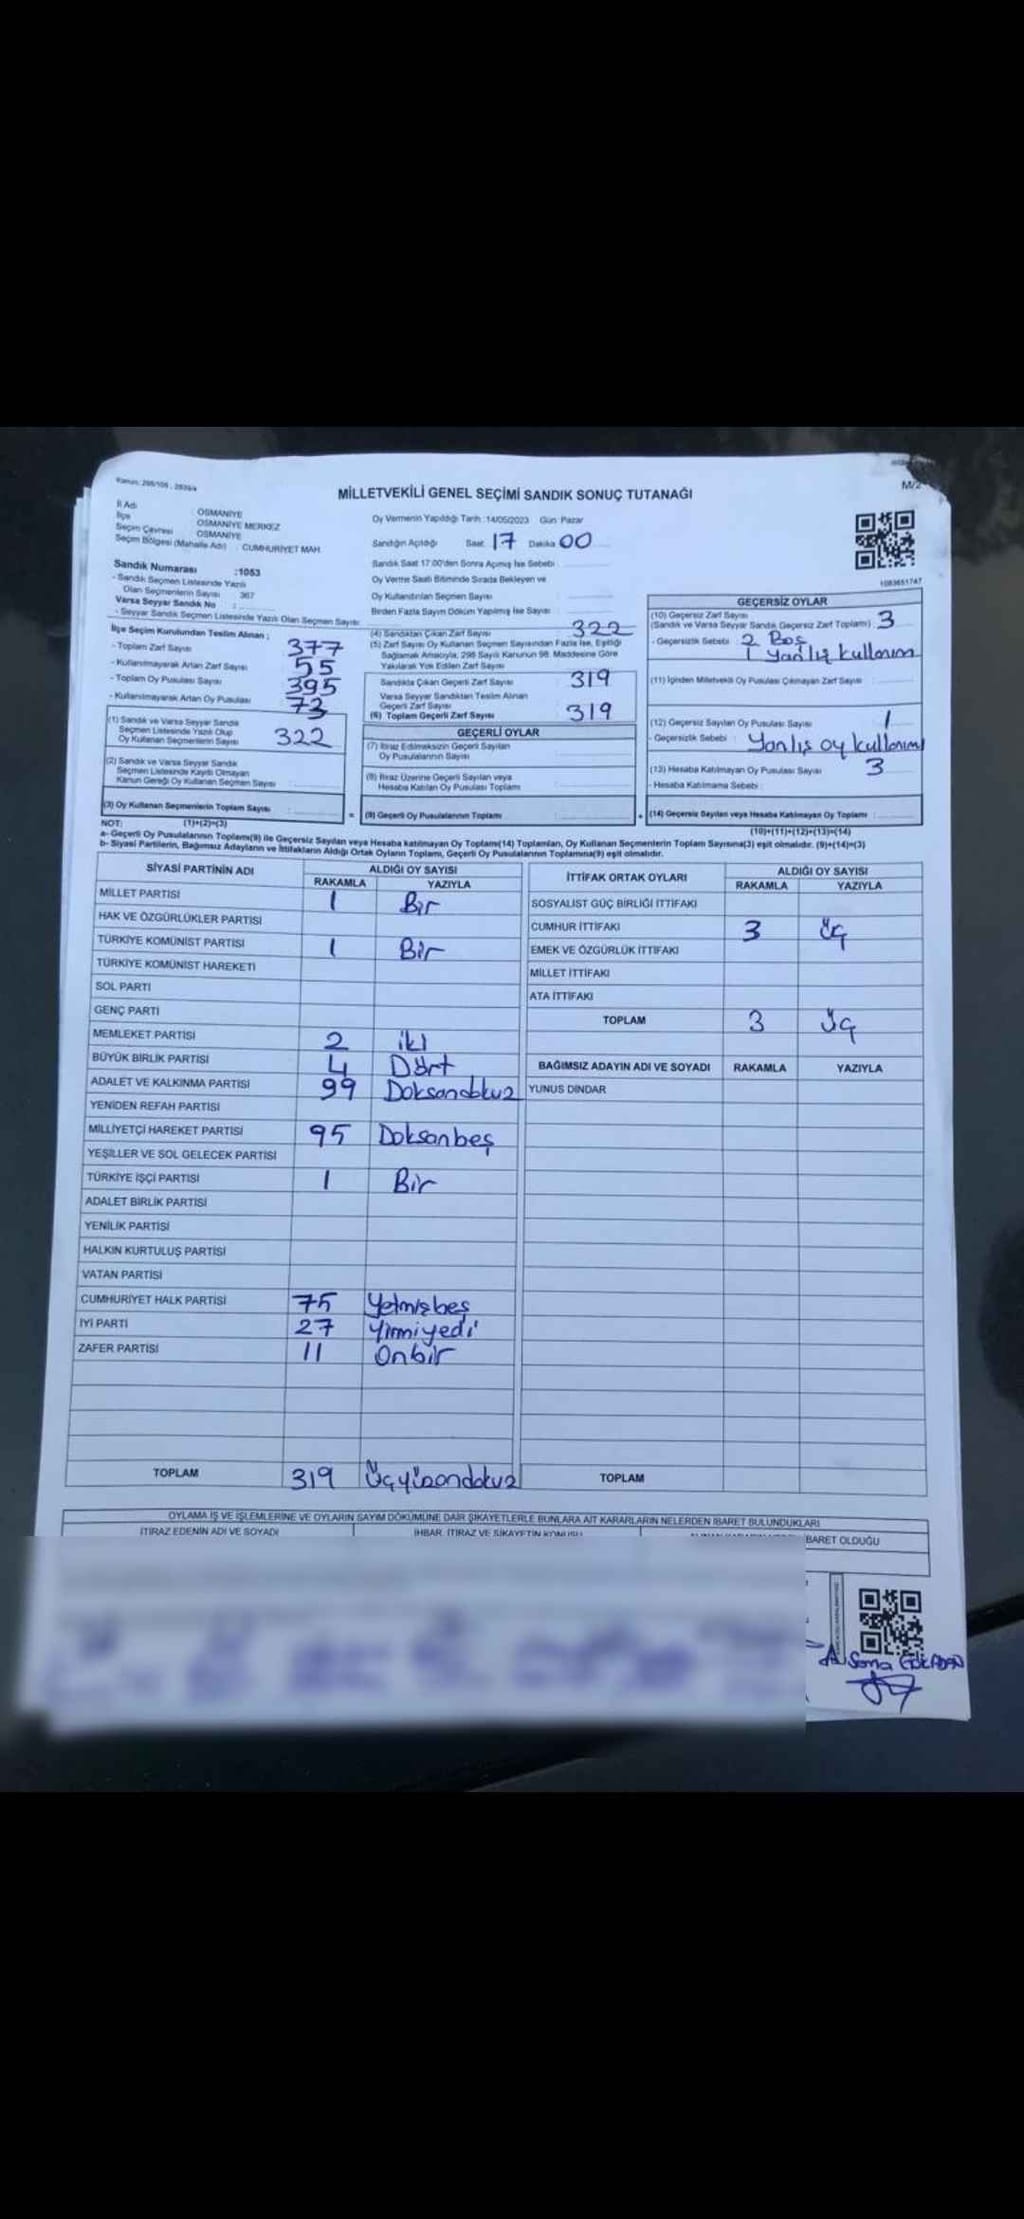 Kanun: 298/105 , 2839/a
M/2
MİLLETVEKİLİ GENEL SEÇİMİ SANDIK SONUÇ TUTANAĞI
İl Adı : OSMANİYE
İlçe : OSMANİYE MERKEZ
Seçim Çevresi : OSMANİYE
Seçim Bölgesi (Mahalle Adı) : CUMHURİYET MAH.
Oy Vermenin Yapıldığı Tarih :14/05/2023 Gün: Pazar
Sandığın Açıldığı Saat: 17 Dakika 00
Sandık Saat 17:00'den Sonra Açılmış İse Sebebi
Oy Verme Saati Bitiminde Sırada Bekleyen ve
Oy Kullandırılan Seçmen Sayısı
Birden Fazla Sayım Döküm Yapılmış İse Sayısı
1083651747
Sandık Numarası :1053
- Sandık Seçmen Listesinde Yazılı
Olan Seçmenlerin Sayısı : 367
Varsa Seyyar Sandık No :
- Seyyar Sandık Seçmen Listesinde Yazılı Olan Seçmen Sayısı:
İlçe Seçim Kurulundan Teslim Alınan ;
- Toplam Zarf Sayısı 377
- Kullanılmayarak Artan Zarf Sayısı 55
- Toplam Oy Pusulası Sayısı 395
- Kullanılmayarak Artan Oy Pusulası 73
(1) Sandık ve Varsa Seyyar Sandık
Seçmen Listesinde Yazılı Olup
Oy Kullanan Seçmenlerin Sayısı 322
(2) Sandık ve Varsa Seyyar Sandık
Seçmen Listesinde Kayıtlı Olmayan
Kanun Gereği Oy Kullanan Seçmen Sayısı
(3) Oy Kullanan Seçmenlerin Toplam Sayısı
(4) Sandıktan Çıkan Zarf Sayısı 322
(5) Zarf Sayısı Oy Kullanan Seçmen Sayısından Fazla İse, Eşitliği
Sağlamak Amacıyla, 298 Sayılı Kanunun 98. Maddesine Göre
Yakılarak Yok Edilen Zarf Sayısı
Sandıkta Çıkan Geçerli Zarf Sayısı 319
Varsa Seyyar Sandıktan Teslim Alınan
Geçerli Zarf Sayısı
(6) Toplam Geçerli Zarf Sayısı 319
GEÇERLİ OYLAR
(7) İtiraz Edilmeksizin Geçerli Sayılan
Oy Pusulalarının Sayısı
(8) İtiraz Üzerine Geçerli Sayılan veya
Hesaba Katılan Oy Pusulası Toplamı
= (9) Geçerli Oy Pusulalarının Toplamı
GEÇERSİZ OYLAR
(10) Geçersiz Zarf Sayısı
(Sandık ve Varsa Seyyar Sandık Geçersiz Zarf Toplamı) 3
- Geçersizlik Sebebi 2 Boş
1 yanlış kullanım
(11) İçinden Milletvekili Oy Pusulası Çıkmayan Zarf Sayısı
(12) Geçersiz Sayılan Oy Pusulası Sayısı 1
- Geçersizlik Sebebi : Yanlış oy kullanımı
(13) Hesaba Katılmayan Oy Pusulası Sayısı 3
- Hesaba Katılmama Sebebi :
+ (14) Geçersiz Sayılan veya Hesaba Katılmayan Oy Toplamı :
NOT: (1)+(2)=(3)
(10)+(11)+(12)+(13)=(14)
a- Geçerli Oy Pusulalarının Toplamı(9) ile Geçersiz Sayılan veya Hesaba katılmayan Oy Toplamı(14) Toplamları, Oy Kullanan Seçmenlerin Toplam Sayısına(3) eşit olmalıdır. (9)+(14)=(3)
b- Siyasi Partilerin, Bağımsız Adayların ve İttifakların Aldığı Ortak Oyların Toplamı, Geçerli Oy Pusulalarının Toplamına(9) eşit olmalıdır.
SİYASİ PARTİNİN ADI
ALDIĞI OY SAYISI
RAKAMLA YAZIYLA
MİLLET PARTİSİ 1 Bir
HAK VE ÖZGÜRLÜKLER PARTİSİ
TÜRKİYE KOMÜNİST PARTİSİ 1 Bir
TÜRKİYE KOMÜNİST HAREKETİ
SOL PARTİ
GENÇ PARTİ
MEMLEKET PARTİSİ 2 iki
BÜYÜK BİRLİK PARTİSİ 4 Dört
ADALET VE KALKINMA PARTİSİ 99 Doksandokuz
YENİDEN REFAH PARTİSİ
MİLLİYETÇİ HAREKET PARTİSİ 95 Doksanbeş
YEŞİLLER VE SOL GELECEK PARTİSİ
TÜRKİYE İŞÇİ PARTİSİ 1 Bir
ADALET BİRLİK PARTİSİ
YENİLİK PARTİSİ
HALKIN KURTULUŞ PARTİSİ
VATAN PARTİSİ
CUMHURİYET HALK PARTİSİ 75 Yetmişbeş
İYİ PARTİ 27 Yirmiyedi
ZAFER PARTİSİ 11 Onbir
TOPLAM 319 Üçyüzondokuz
İTTİFAK ORTAK OYLARI
ALDIĞI OY SAYISI
RAKAMLA YAZIYLA
SOSYALİST GÜÇ BİRLİĞİ İTTİFAKI
CUMHUR İTTİFAKI 3 Üç
EMEK VE ÖZGÜRLÜK İTTİFAKI
MİLLET İTTİFAKI
ATA İTTİFAKI
TOPLAM 3 Üç
BAĞIMSIZ ADAYIN ADI VE SOYADI RAKAMLA YAZIYLA
YUNUS DİNDAR
TOPLAM
OYLAMA İŞ VE İŞLEMLERİNE VE OYLARIN SAYIM DÖKÜMÜNE DAİR ŞİKAYETLERLE BUNLARA AİT KARARLARIN NELERDEN İBARET BULUNDUKLARI
İTİRAZ EDENİN ADI VE SOYADI İHBAR, İTİRAZ VE ŞİKAYETİN KONUSU BARET OLDUĞU